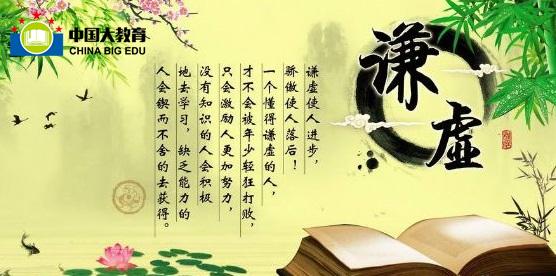 中国大教育
CHINA BIG EDU
谦虚
谦虚使人进步，
骄傲使人落后！
一个懂得谦虚的人，
才不会被年少轻狂打败，
只会激励人更加努力，
没有知识的人会积极
地去学习，缺乏能力的
人会锲而不舍的去获得。